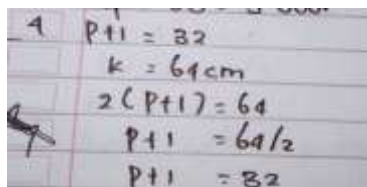 4 P+l = 32
k = 64 cm
2(P+l) = 64
P+l = 64/2
P+l = 32